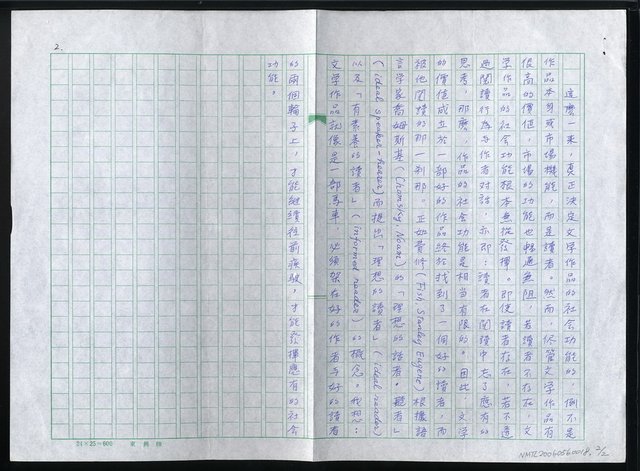 2.
這麼一來,真正決定文學作品的社會功能的,倒不是
作品本身或市場機能,而是讀者。然而,儘管文學作品有
很高的價值,市場的功能也暢通無阻,若讀者不存在,文
學作品的社會功能根本無從發揮。即使讀者存在,若不透
過閱讀行為與作者對話,亦即:讀者在閱讀中忘了應有的
思考,那麼,作品的社會功能是相當有限的。因此,文學
的價值成立於一部好的作品終於找到了一個好讀者,而
被他閱讀的那一剎那。正如費修(Fish, Stanley Eugene)根據語
言學家喬姆斯基(Chomsky, Noam)的「理想的話者。聽者」
(ideal speaker-hearer)而提出「理想的讀者」(ideal reader)
以及「有素養的讀者」(informed reader)的概念。我想:
文學作品就像是一部馬車,必須架在好的作者與好的讀者
的兩個輪子上,才能繼續往前疾駛,才能發揮應有的社會
功能。
24×25=600
NMTL20060560018, 2/2